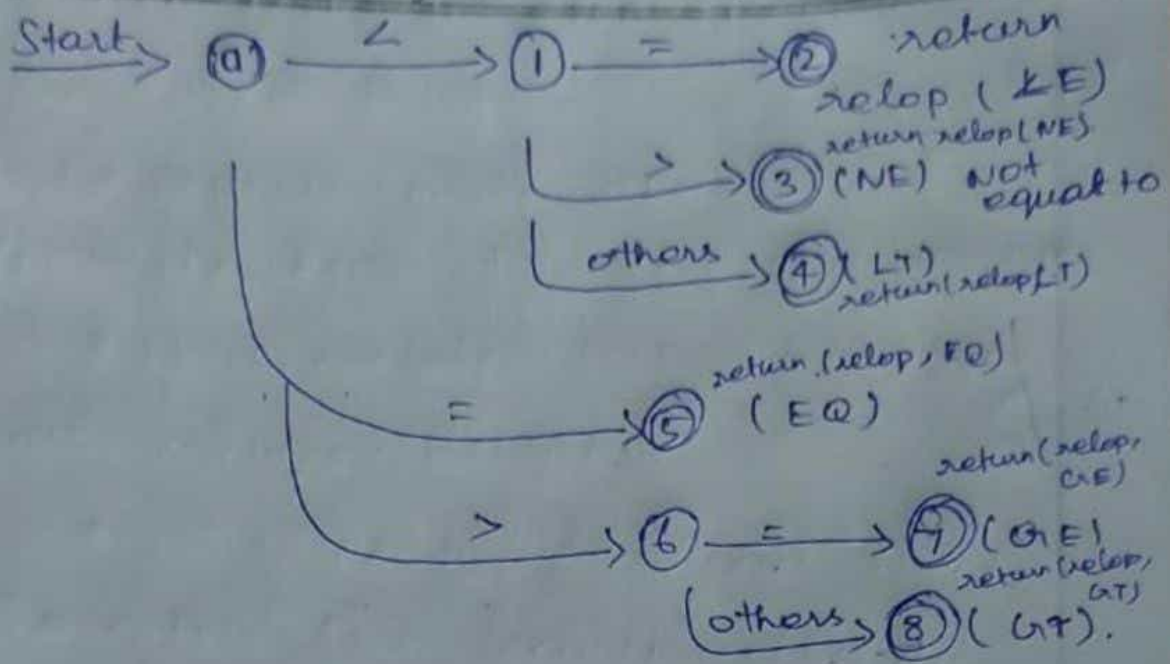 Start < =
0 1 2 return
relop (LE)
> 3 return relop(NE)
(NE) Not
equal to
others 4 (LT)
return(relop,LT)
return (relop, EQ)
= 5 (EQ)
return(relop,
GE)
> 6 = 7 (GE)
return(relop,
GT)
others 8 (GT).